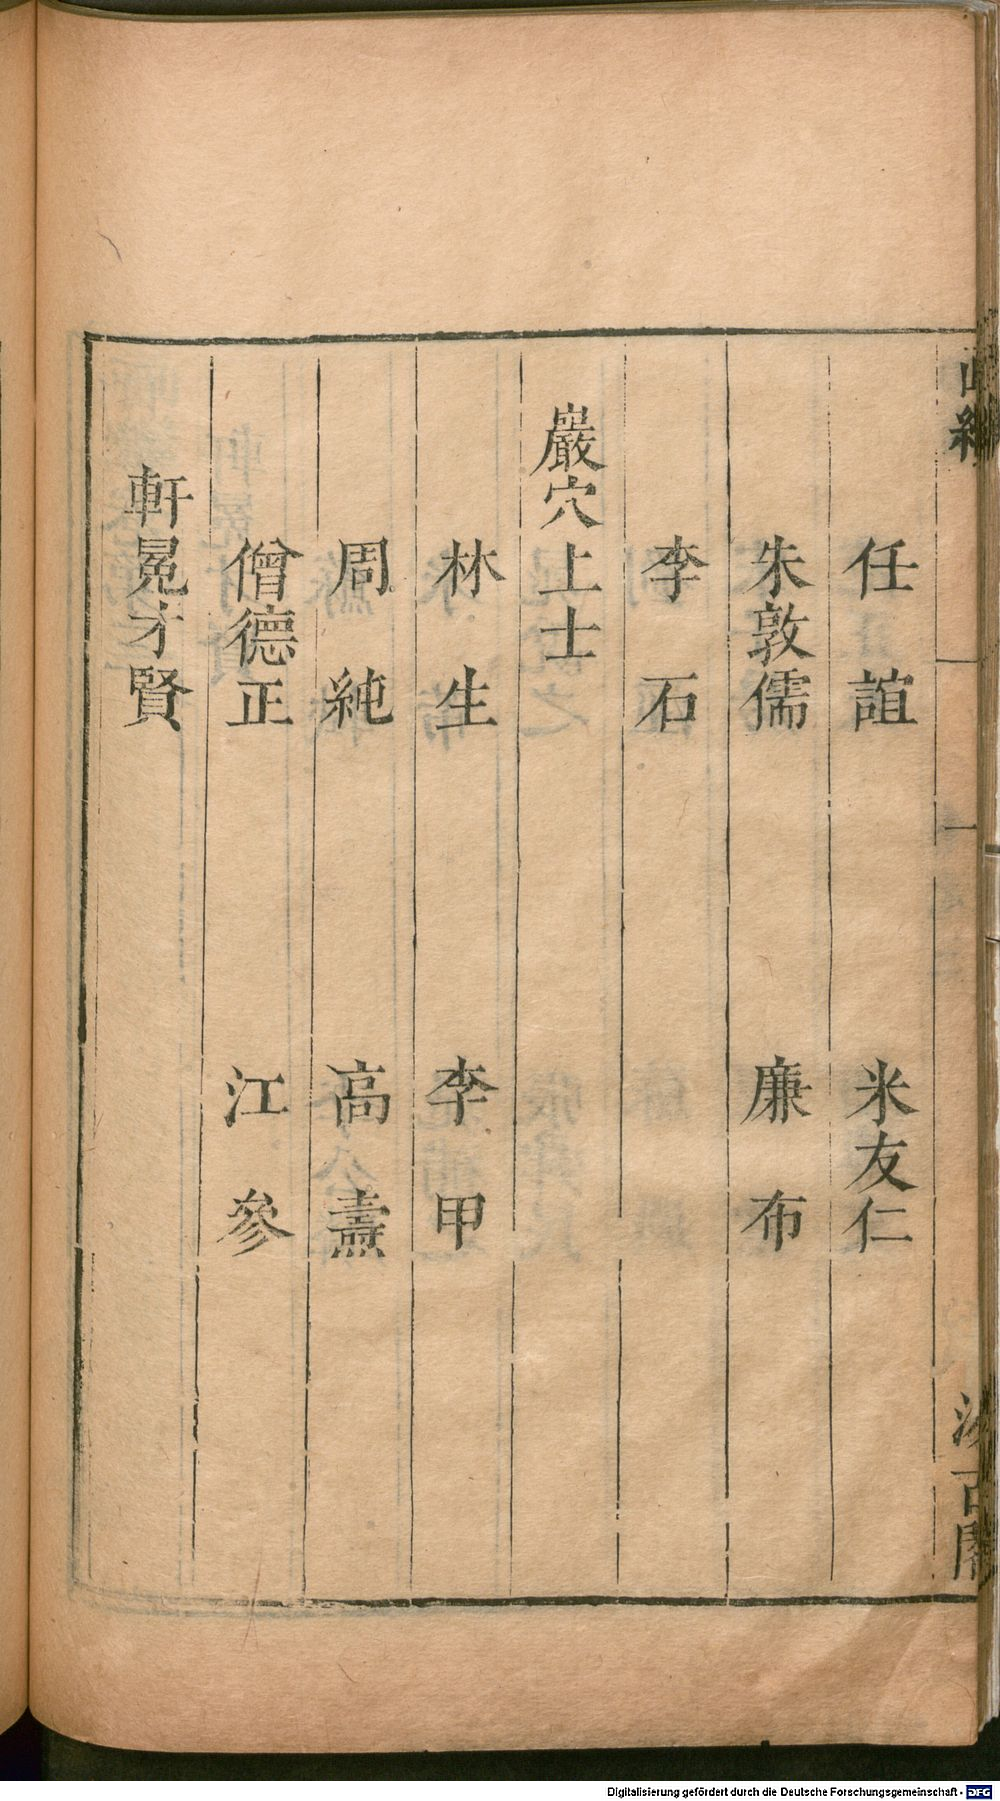 任誼　米友仁
朱敦儒　廉布
李石
巖穴上士
林生　李甲
周純　高燾
僧德正　江參
軒冕才賢
一
汲古閣
Digitalisierung gefördert durch die Deutsche Forschungsgemeinschaft - DFG